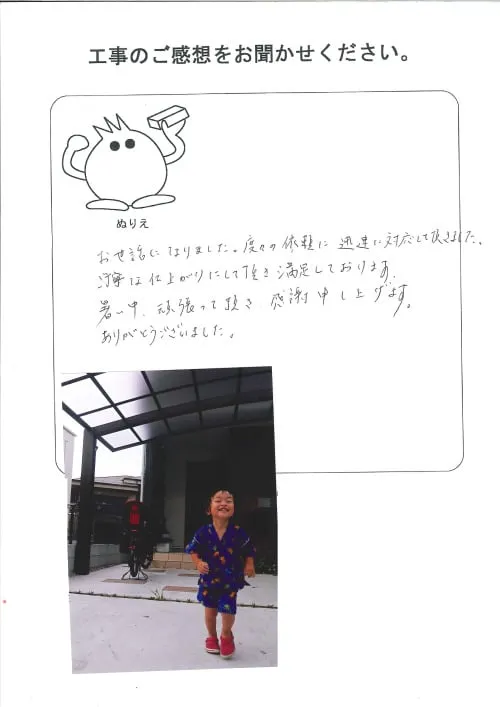 工事のご感想をお聞かせください。
ぬりえ
お世話になりました。度々の依頼に 迅速に対応して頂きました。
丁寧な仕上がりにして頂き満足しております。
暑い中、頑張って頂き 感謝申し上げます。
ありがとうございました。